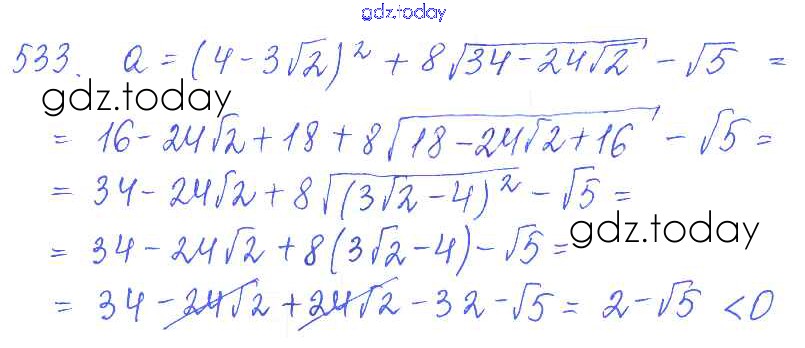 gdz.today
533. a = (4 - 3√2)² + 8√(34 - 24√2) - √5 =
gdz.today
= 16 - 24√2 + 18 + 8√(18 - 24√2 + 16) - √5 =
= 34 - 24√2 + 8√((3√2 - 4)²) - √5 =
= 34 - 24√2 + 8(3√2 - 4) - √5 =
gdz.today
= 34 - 24√2 + 24√2 - 32 - √5 = 2 - √5 < 0